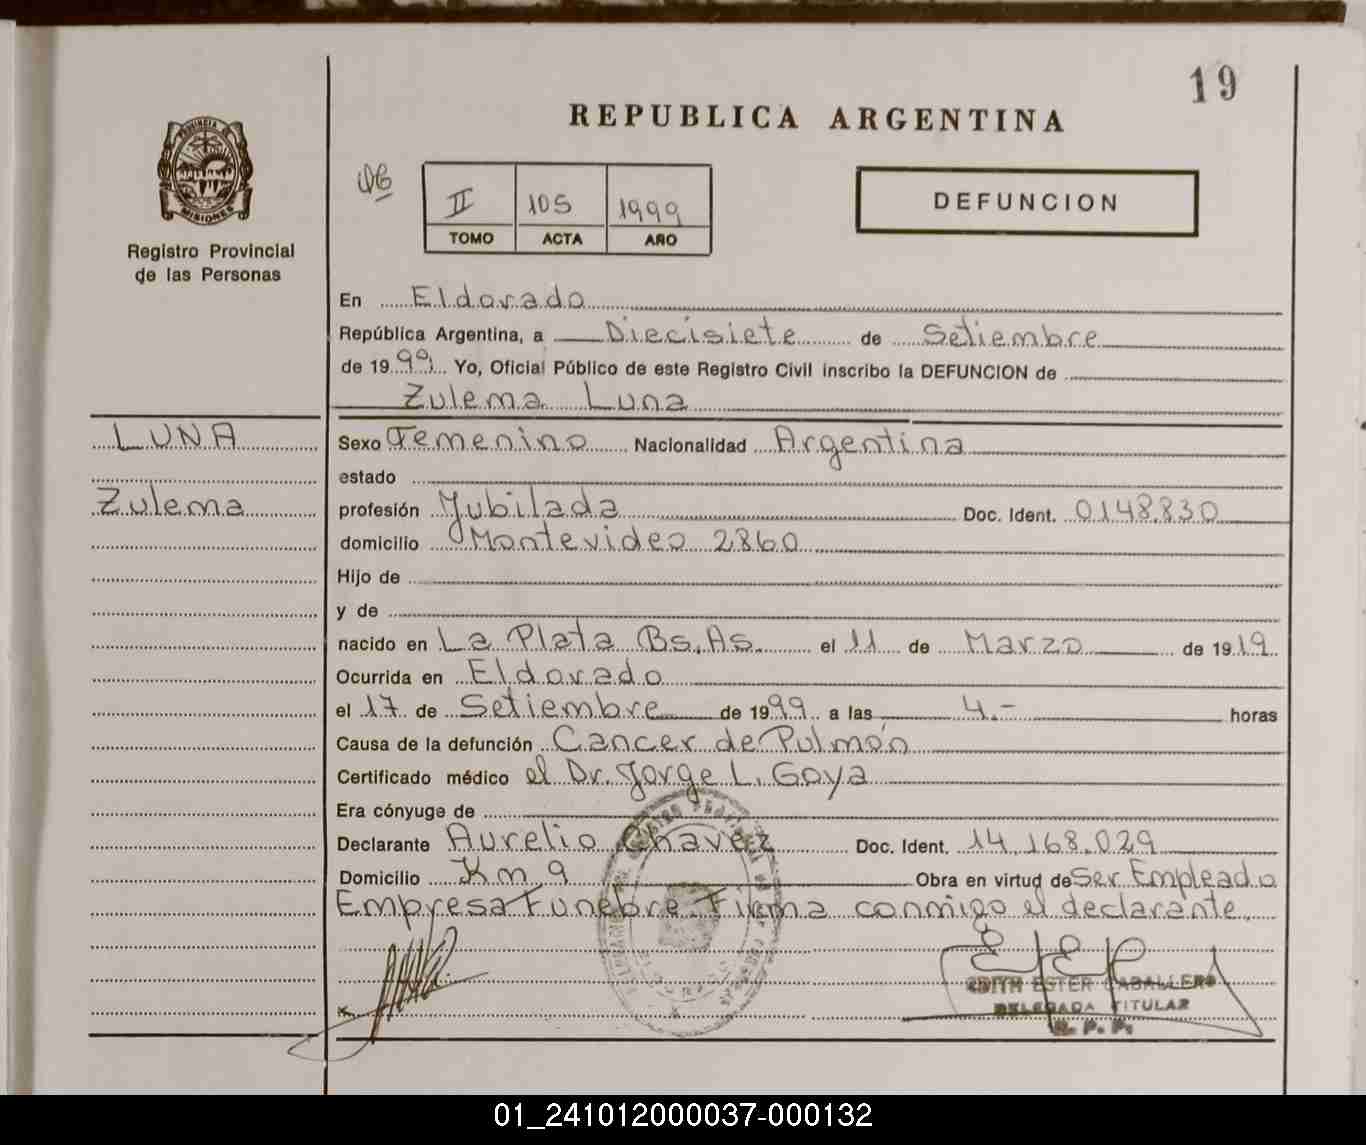 19
REPUBLICA ARGENTINA
PROVINCIA DE
MISIONES
Registro Provincial
de las Personas
II 105 1999
TOMO ACTA AÑO
DEFUNCION
En Eldorado
República Argentina, a Diecisiete de Setiembre
de 1999. Yo, Oficial Público de este Registro Civil inscribo la DEFUNCION de
Zulema Luna
LUNA
Zulema
Sexo Femenino Nacionalidad Argentina
estado
profesión Jubilada Doc. Ident. 0148.830
domicilio Montevideo 2860
Hijo de
y de
nacido en La Plata Bs.As. el 11 de Marzo de 1919
Ocurrida en Eldorado
el 17 de Setiembre de 1999 a las 4.- horas
Causa de la defunción Cancer de Pulmón
Certificado médico el Dr. Jorge L. Goya
Era cónyuge de
Declarante Aurelio Chavez Doc. Ident. 14.168.029
Domicilio Km 9 Obra en virtud de Ser Empleado
Empresa Funebre. Firma conmigo el declarante.
EDITH ESTER CABALLERO
DELEGADA TITULAR
R. P. P.
01_241012000037-000132